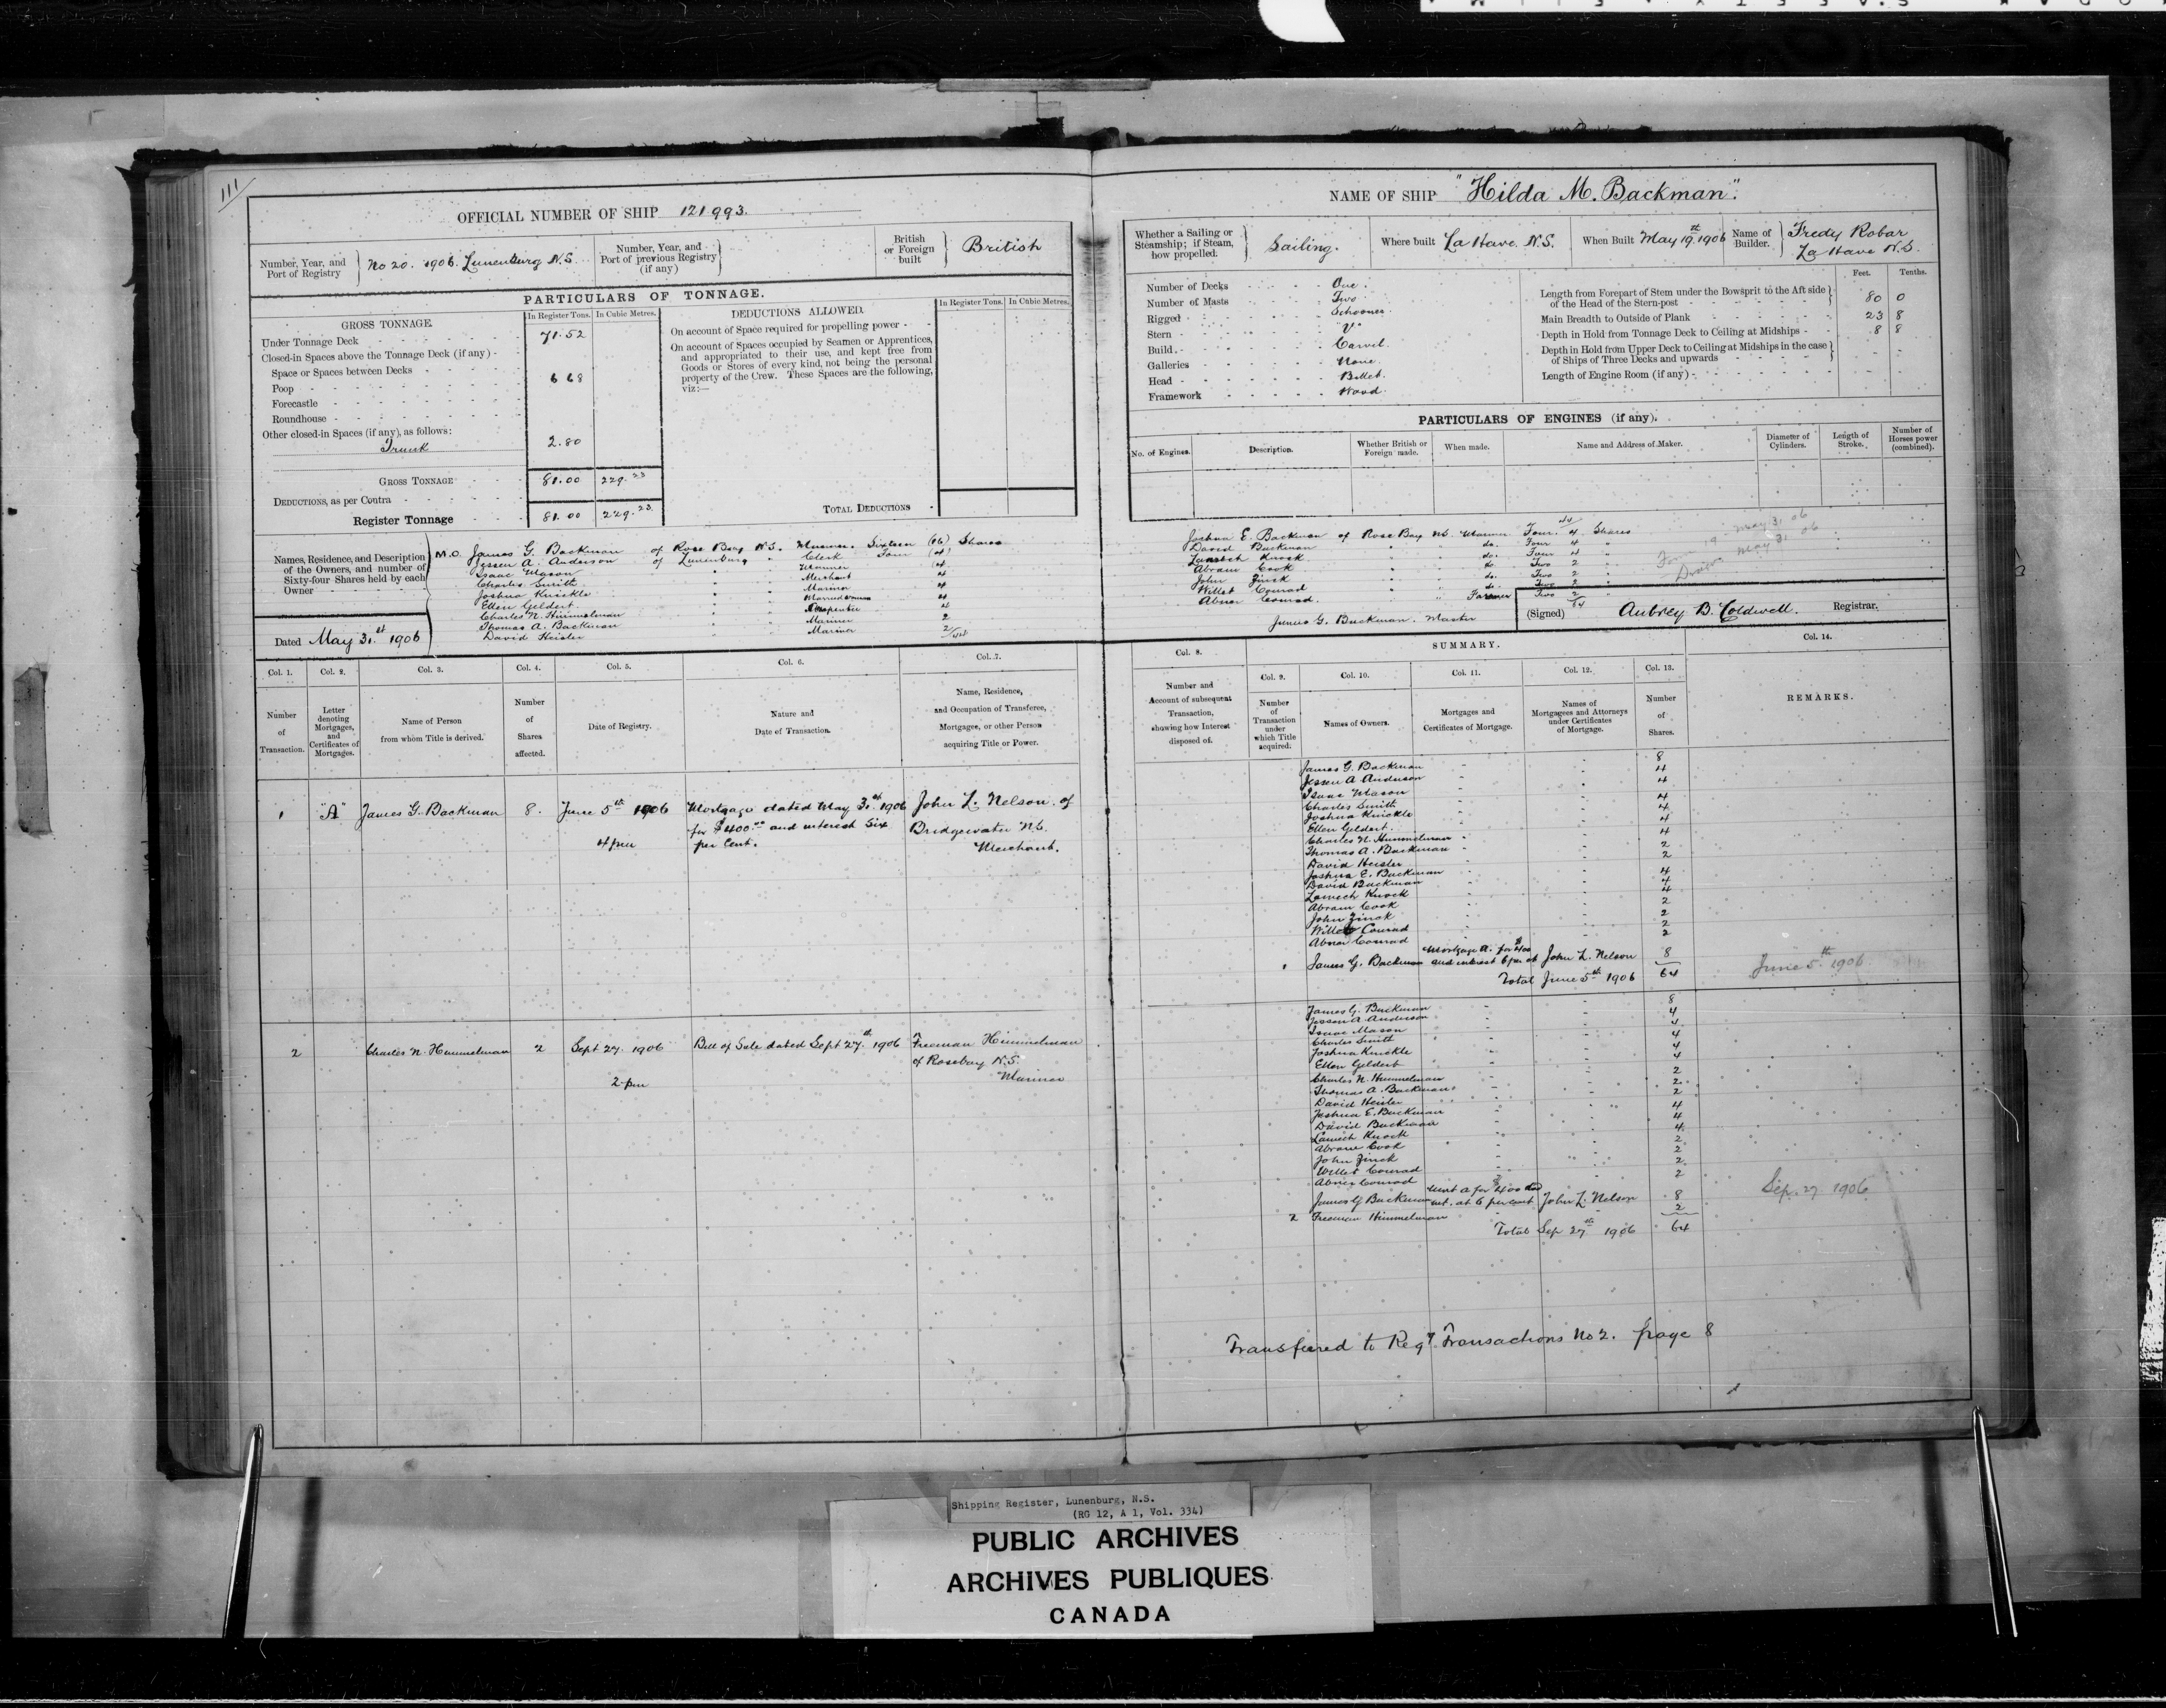 111
OFFICIAL NUMBER OF SHIP 121993.
Number, Year, and Port of Registry } No 20. 1906. Lunenburg N.S.
Number, Year, and Port of previous Registry (if any) }
British or Foreign built } British
PARTICULARS OF TONNAGE.
GROSS TONNAGE.
In Register Tons. In Cubic Metres.
Under Tonnage Deck 71.52
Closed-in Spaces above the Tonnage Deck (if any)
Space or Spaces between Decks
Poop 6 68
Forecastle
Roundhouse
Other closed-in Spaces (if any), as follows:
Trunk 2.80
GROSS TONNAGE 81.00 229.23
DEDUCTIONS, as per Contra
Register Tonnage 81.00 229.23
DEDUCTIONS ALLOWED.
In Register Tons. In Cubic Metres.
On account of Space required for propelling power
On account of Spaces occupied by Seamen or Apprentices,
and appropriated to their use, and kept free from
Goods or Stores of every kind, not being the personal
property of the Crew. These Spaces are the following,
viz:—
TOTAL DEDUCTIONS
Names, Residence, and Description
of the Owners, and number of
Sixty-four Shares held by each
Owner
M.O. James G. Backman of Rose Bay N.S. Mariner. Sixteen (16) Shares
Jessen A. Anderson of Lunenburg " Clerk Four (4)
Isaac Mason " " Mariner (4
Charles Smith " " Merchant 4
Joshua Knickle " " Mariner 4
Ellen Geldert " " 4
Charles N. Himmelman " " 4
Thomas A. Backman " " Mariner 2
David Heisler " " Mariner 2/44
Dated May 31st 1906
NAME OF SHIP "Hilda M. Backman".
Whether a Sailing or Steamship; if Steam, how propelled. } Sailing.
Where built La Have. N.S.
When Built May 19th 1906
Name of Builder. } Fredy Robar
La Have N.S.
Number of Decks One.
Number of Masts Two.
Rigged Schooner.
Stern "V"
Build Carvel.
Galleries None.
Head Billet.
Framework Wood.
Feet. Tenths.
Length from Forepart of Stem under the Bowsprit to the Aft side
of the Head of the Stern-post 80 0
Main Breadth to Outside of Plank 23 8
Depth in Hold from Tonnage Deck to Ceiling at Midships 8 8
Depth in Hold from Upper Deck to Ceiling at Midships in the case
of Ships of Three Decks and upwards
Length of Engine Room (if any)
PARTICULARS OF ENGINES (if any).
No. of Engines. Description. Whether British or Foreign made. When made. Name and Address of Maker. Diameter of Cylinders. Length of Stroke. Number of Horses power (combined).
44
Joshua E. Backman of Rose Bay N.S. Mariner Four. 4 Shares
David Backman " " do. Four 4 "
Lamech Knock " " do. Four 4 "
Abram Cook " " do Two 2 "
John Zinck " " do. Two 2 "
Willet Conrad " " do. Two 2 "
Abner Conrad. " " Farmer Two 2 "
64
James G. Backman. Master
May 31 06
May 31 06
(Signed) Aubrey B. Coldwell. Registrar.
Col. 1. Col. 2. Col. 3. Col. 4. Col. 5. Col. 6. Col. 7.
Number of Transaction.
Letter denoting Mortgages, and Certificates of Mortgages.
Name of Person from whom Title is derived.
Number of Shares affected.
Date of Registry.
Nature and Date of Transaction.
Name, Residence, and Occupation of Transferee, Mortgagee, or other Person acquiring Title or Power.
1 "A" James G. Backman 8. June 5th 1906 Mortgage dated May 31st 1906 John L. Nelson of
for $400.00 and interest Six Bridgewater N.S.
4 pm per cent. Merchant.
2 Charles N. Himmelman 2 Sept 27. 1906 Bill of Sale dated Sept 27th 1906 Freeman Himmelman
of Rosebay N.S.
2 pm Mariner
Col. 8. SUMMARY. Col. 14.
Col. 9. Col. 10. Col. 11. Col. 12. Col. 13.
Number and Account of subsequent Transaction, showing how Interest disposed of.
Number of Transaction under which Title acquired.
Names of Owners.
Mortgages and Certificates of Mortgage.
Names of Mortgagees and Attorneys under Certificates of Mortgage.
Number of Shares.
REMARKS.
James G. Backman 8
Jessen A. Anderson 4
Isaac Mason 4
Charles Smith 4
Joshua Knickle 4
Ellen Geldert. 4
Charles N. Himmelman 4
Thomas A. Backman 2
David Heisler 2
Joshua E. Backman 4
David Backman 4
Lamech Knock 4
Abram Cook 2
John Zinck 2
Willet Conrad 2
Abner Conrad 2
1 James G. Backman Mortgage A. for $400 and interest 6 per ct John L. Nelson 8
Total June 5th 1906 64
June 5th 1906
James G. Backman 8
Jessen A Anderson 4
Isaac Mason 4
Charles Smith 4
Joshua Knickle 4
Ellen Geldert 4
Charles N. Himmelman 2
Thomas A. Backman 2
David Heisler 2
Joshua E. Backman 4
David Backman 4
Lamech Knock 4
Abram Cook 2
John Zinck 2
Willet Conrad 2
Abner Conrad 2
James G Backman Mort A for $400 and int. at 6 per cent John L. Nelson 8
2 Freeman Himmelman 2
Total Sep 27th 1906 64
Sep. 27 1906
Transfered to Regr Transactions No 2. page 8
Shipping Register, Lunenburg, N.S.
(RG 12, A 1, Vol. 334)
PUBLIC ARCHIVES
ARCHIVES PUBLIQUES
CANADA